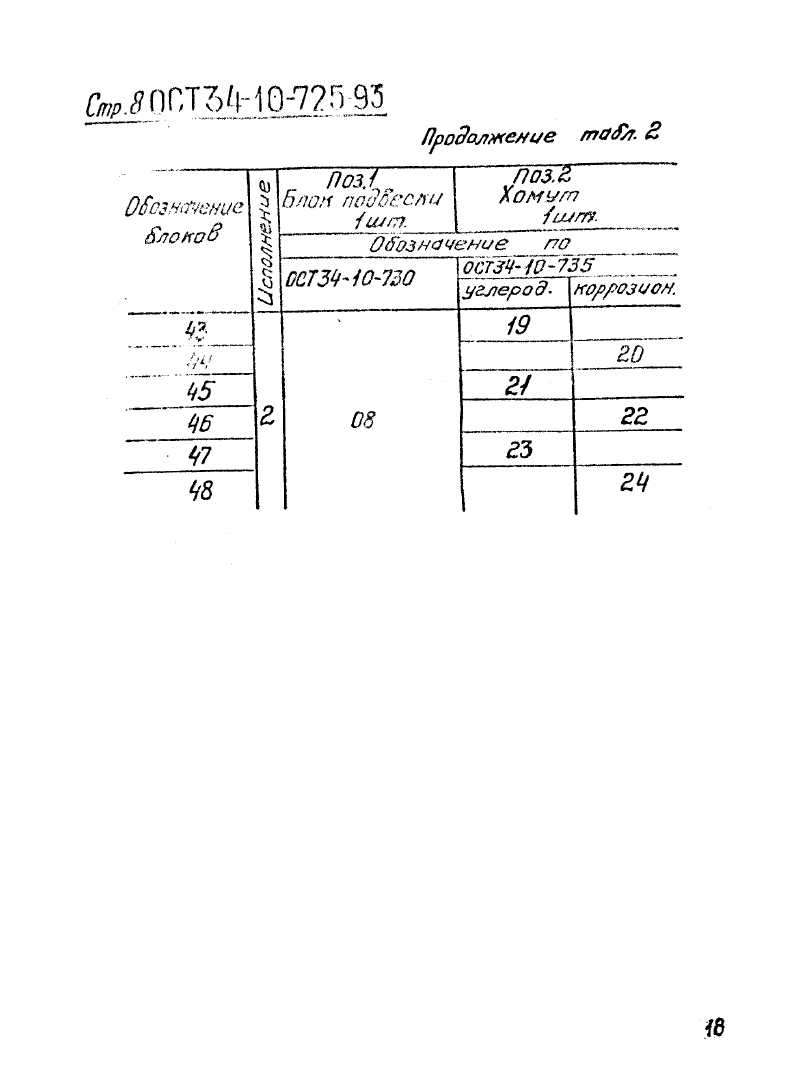 Стр.8 ОСТ34-10-725-93
Продолжение табл. 2
Обозначение блоков
Исполнение
Поз.1
Блок подвески
1шт.
Поз.2
Хомут
1шт.
Обозначение по
ОСТ34-10-730
ОСТ34-10-735
углерод. коррозион.
43 19
44 20
45 21
2 08
46 22
47 23
48 24
18